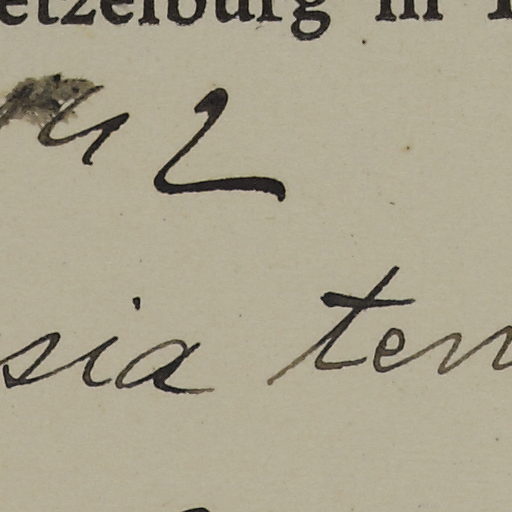 etzelburg in
2
sia ten